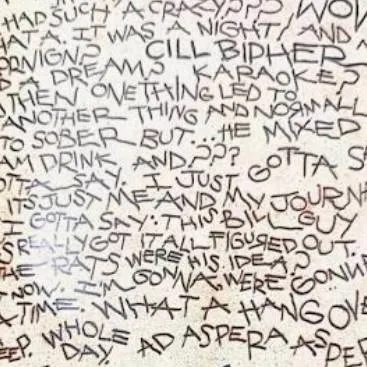 HAD SUCH A CRAZY??? WOW
HAT A. IT WAS A NIGHT! AND
CILL BIPHER
A DREAM? KARAOKE?
THEN ONE THING LED TO
ANOTHER THING AND NORMALL
TO SOBER BUT... HE MIXED
AM DRINK AND??? GOTTA S
OTTA SAY. I JUST
IT'S JUST ME AND MY JOURN
I GOTTA SAY: THIS BILL GUY
S REALLY GOT IT ALL FIGURED OUT.
THE RATS WERE HIS IDEA?
NOW. I'M GONNA. WERE GONNA
A TIME. WHAT A HANGOVE
EEP. WHOLE DAY. AD ASPERA ASPER